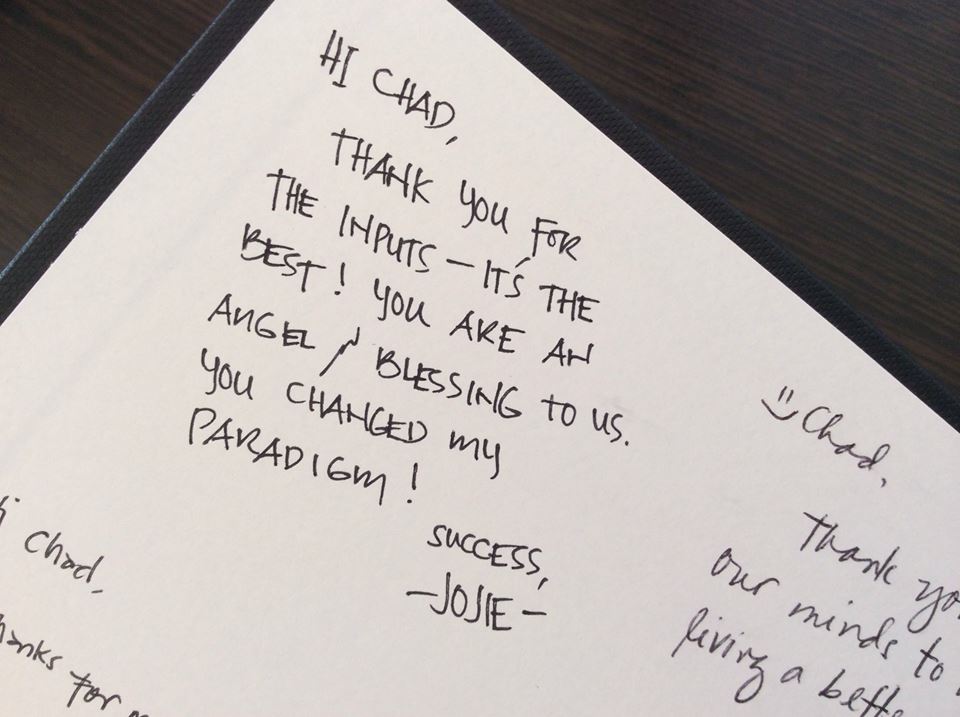 HI CHAD,
THANK YOU FOR
THE INPUTS - IT'S THE
BEST! YOU ARE AN
ANGEL / BLESSING TO US.
YOU CHANGED MY
PARADIGM!
SUCCESS,
- JOJIE -
Chad,
Thank yo
our minds to
living a bette
Chad,
hanks for